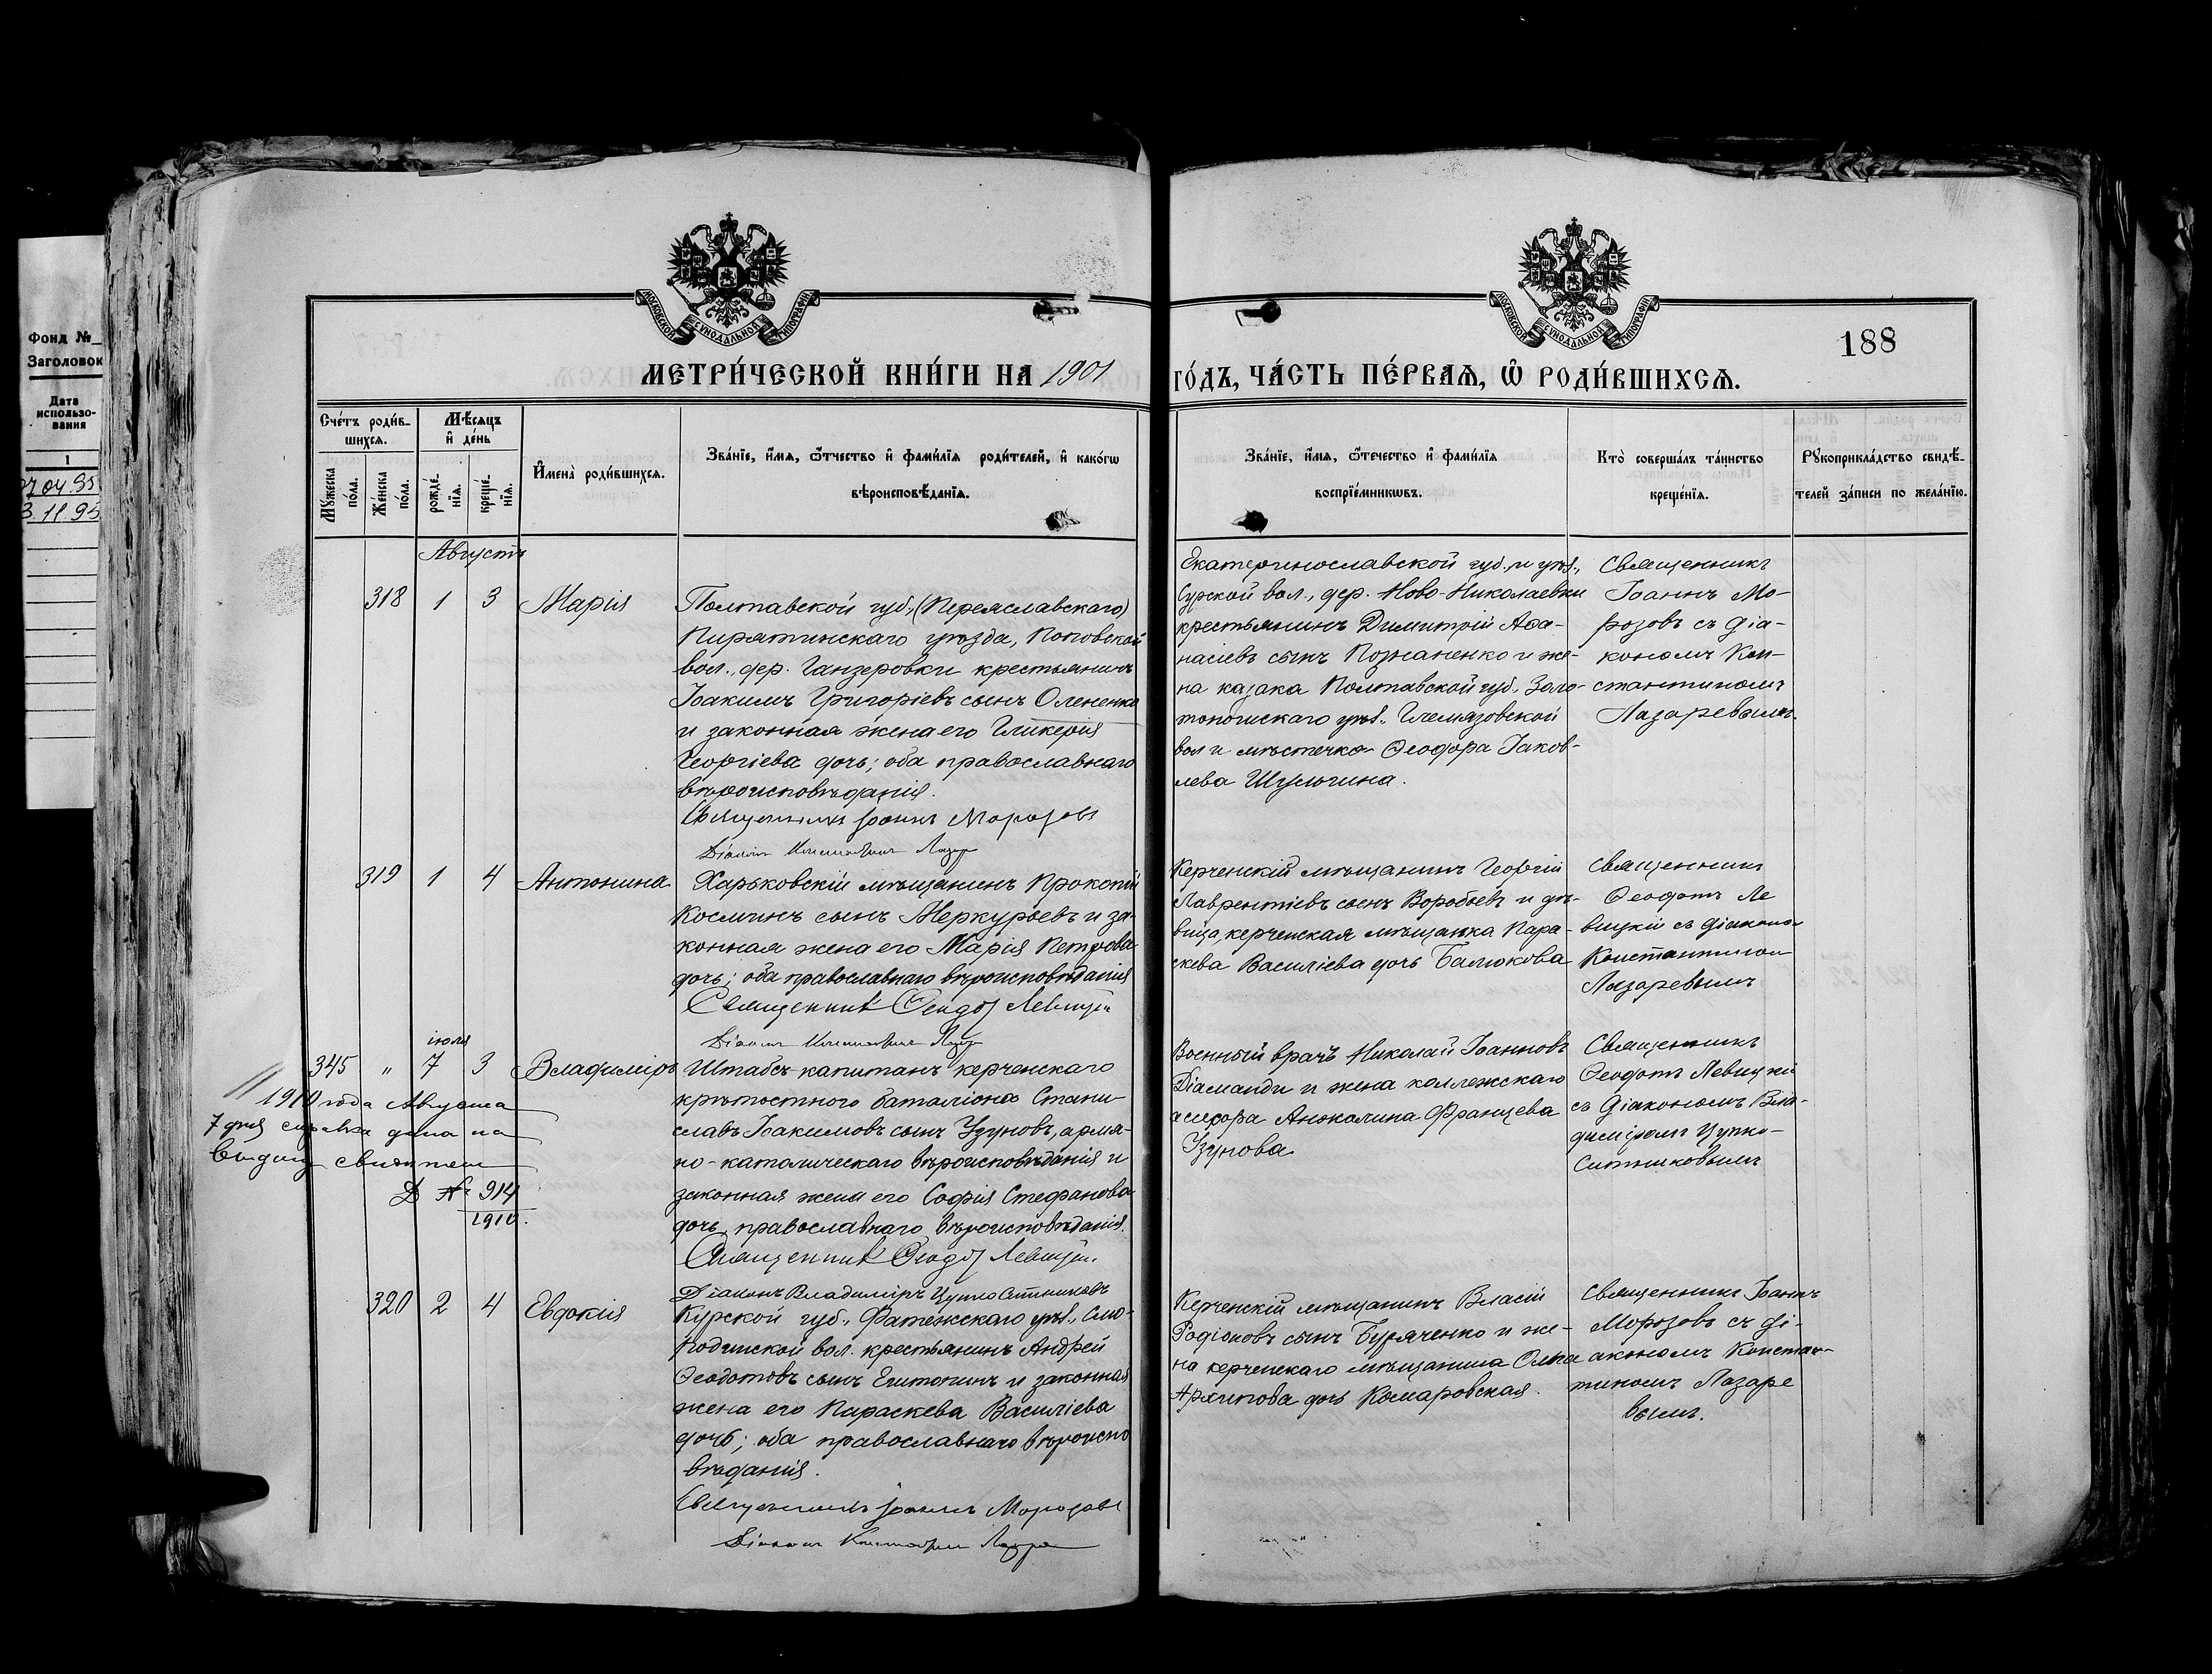 Фонд №
Заголовок
Дата
использо-
вания
1
04.95
11.95
МОСКОВСКОЙ СѴНОДАЛЬНОЙ ТИПОГРАФІИ
МОСКОВСКОЙ СѴНОДАЛЬНОЙ ТИПОГРАФІИ
188
МЕТРИ́ЧЕСКОЙ КНИ́ГИ НА 1901
ГО́ДЪ, ЧА́СТЬ ПЕ́РВАѦ, Ѡ РОДИ́ВШИХСѦ.
Сче́тъ роди́в-
шихсѧ.
Мѣ́сѧцъ
и҆ де́нь
Мꙋ́жеска
по́ла.
Же́нска
по́ла.
рожде́-
нїѧ.
креще́-
нїѧ.
И҆мена̀ роди́вшихсѧ.
Зва́нїе, и҆́мѧ, ѻ҆́тчество и҆ фами́лїѧ роди́телей, и҆ како́гѡ
вѣроисповѣ́данїѧ.
Зва́нїе, и҆́мѧ, ѻ҆́течество и҆ фами́лїѧ
воспрїе́мникѡвъ.
Кто̀ соверша́лъ та́инство
креще́нїѧ.
Рꙋкоприкла́дство свидѣ́-
телей за́писи по жела́нїю.
Августъ
318 1 3 Марія
Полтавской губ., (Переяславскаго)
Пирятинскаго уѣзда, Поповской
вол., дер. Ганзеровки крестьянинъ
Іоакимъ Григоріевъ сынъ Олененко
и законная жена его Гликерія
Георгіева дочь; оба православнаго
вѣроисповѣданія.
Священникъ Іоаннъ Морозовъ
Діаконъ Константинъ Лазар
Екатеринославской губ. и уѣз.,
Сурской вол., дер. Ново-Николаевки
крестьянинъ Димитрій Аѳа-
насіевъ сынъ Пожаненко и же-
на казака Полтавской губ., Золо-
тоношскаго уѣз., Гельмязовской
вол и мѣстечка Ѳеодора Іаков-
лева Шульгина.
Священникъ
Іоаннъ Мо-
розовъ съ діа-
кономъ Кон-
стантиномъ
Лазаревымъ.
319 1 4 Антонина
Харьковскій мѣщанинъ Прокопій
Космичъ сынъ Меркурьевъ и за-
конная жена его Марія Петрова
дочь; оба православнаго вѣроисповѣданія
Священникъ Ѳеодот Левицкій
Діаконъ Константинъ Лазар
Керченскій мѣщанинъ Георгій
Лаврентіевъ сынъ Воробьевъ и дѣ-
вица, керченская мѣщанка Пара-
скева Василіева дочь Балюкова
Священникъ
Ѳеодотъ Ле
вицкій съ діакономъ
Константином
Лазаревымъ
іюля
345 " 7 3 Владиміръ
1910 года Августа
7 дня справка дана на
выдачу свидѣтел
Д № 914
1910.
Штабсъ-капитанъ керченскаго
крѣпостного баталіона Стани-
славъ Іоакимовъ сынъ Узуновъ, армя-
но-католическаго вѣроисповѣданія и
законная жена его Софія Стефанова
дочь, православнаго вѣроисповѣданія.
Священникъ Ѳеодот Левицкій.
Діаконъ Владиміръ Цупко Ситниковъ
Военный врачъ Николай Іоанновъ
Діаманди и жена коллежскаго
асессора Анжалина Францева
Узунова
Священникъ
Ѳеодотъ Левицкій
съ Діакономъ Вла-
диміромъ Цупко-
Ситниковымъ
320 2 4 Евдокія
Курской губ., Фатежскаго уѣз., Смо-
родинской вол. крестьянинъ Андрей
Ѳеодотовъ сынъ Епитонинъ и законная
жена его Параскева Василіева
дочь; оба православнаго вѣроиспо
вѣданія.
Священникъ Іоаннъ Морозовъ
Діаконъ Константинъ Лазар
Керченскій мѣщанинъ Власій
Родіоновъ сынъ Буряченко и же-
на керченскаго мѣщанина Ольга
Архипова дочь Комаровская.
Священникъ Іоаннъ
Морозовъ съ ді-
акономъ Констан-
тиномъ Лазаре
вымъ.